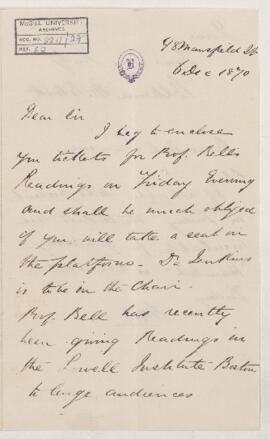 McGILL UNIVERSITY
ARCHIVES
ACC. NO.
REF.
98 Mansfield St
6 Dec 1870
Dear Sir
I beg to enclose
you tickets for Prof. Bell's
Readings on Friday Evening
and shall be much obliged
if you will take a seat on
the platform. Dr Jenkins
is to be in the Chair.
Prof. Bell has recently
been giving Readings in
the Lowell Institute Boston
to large audiences